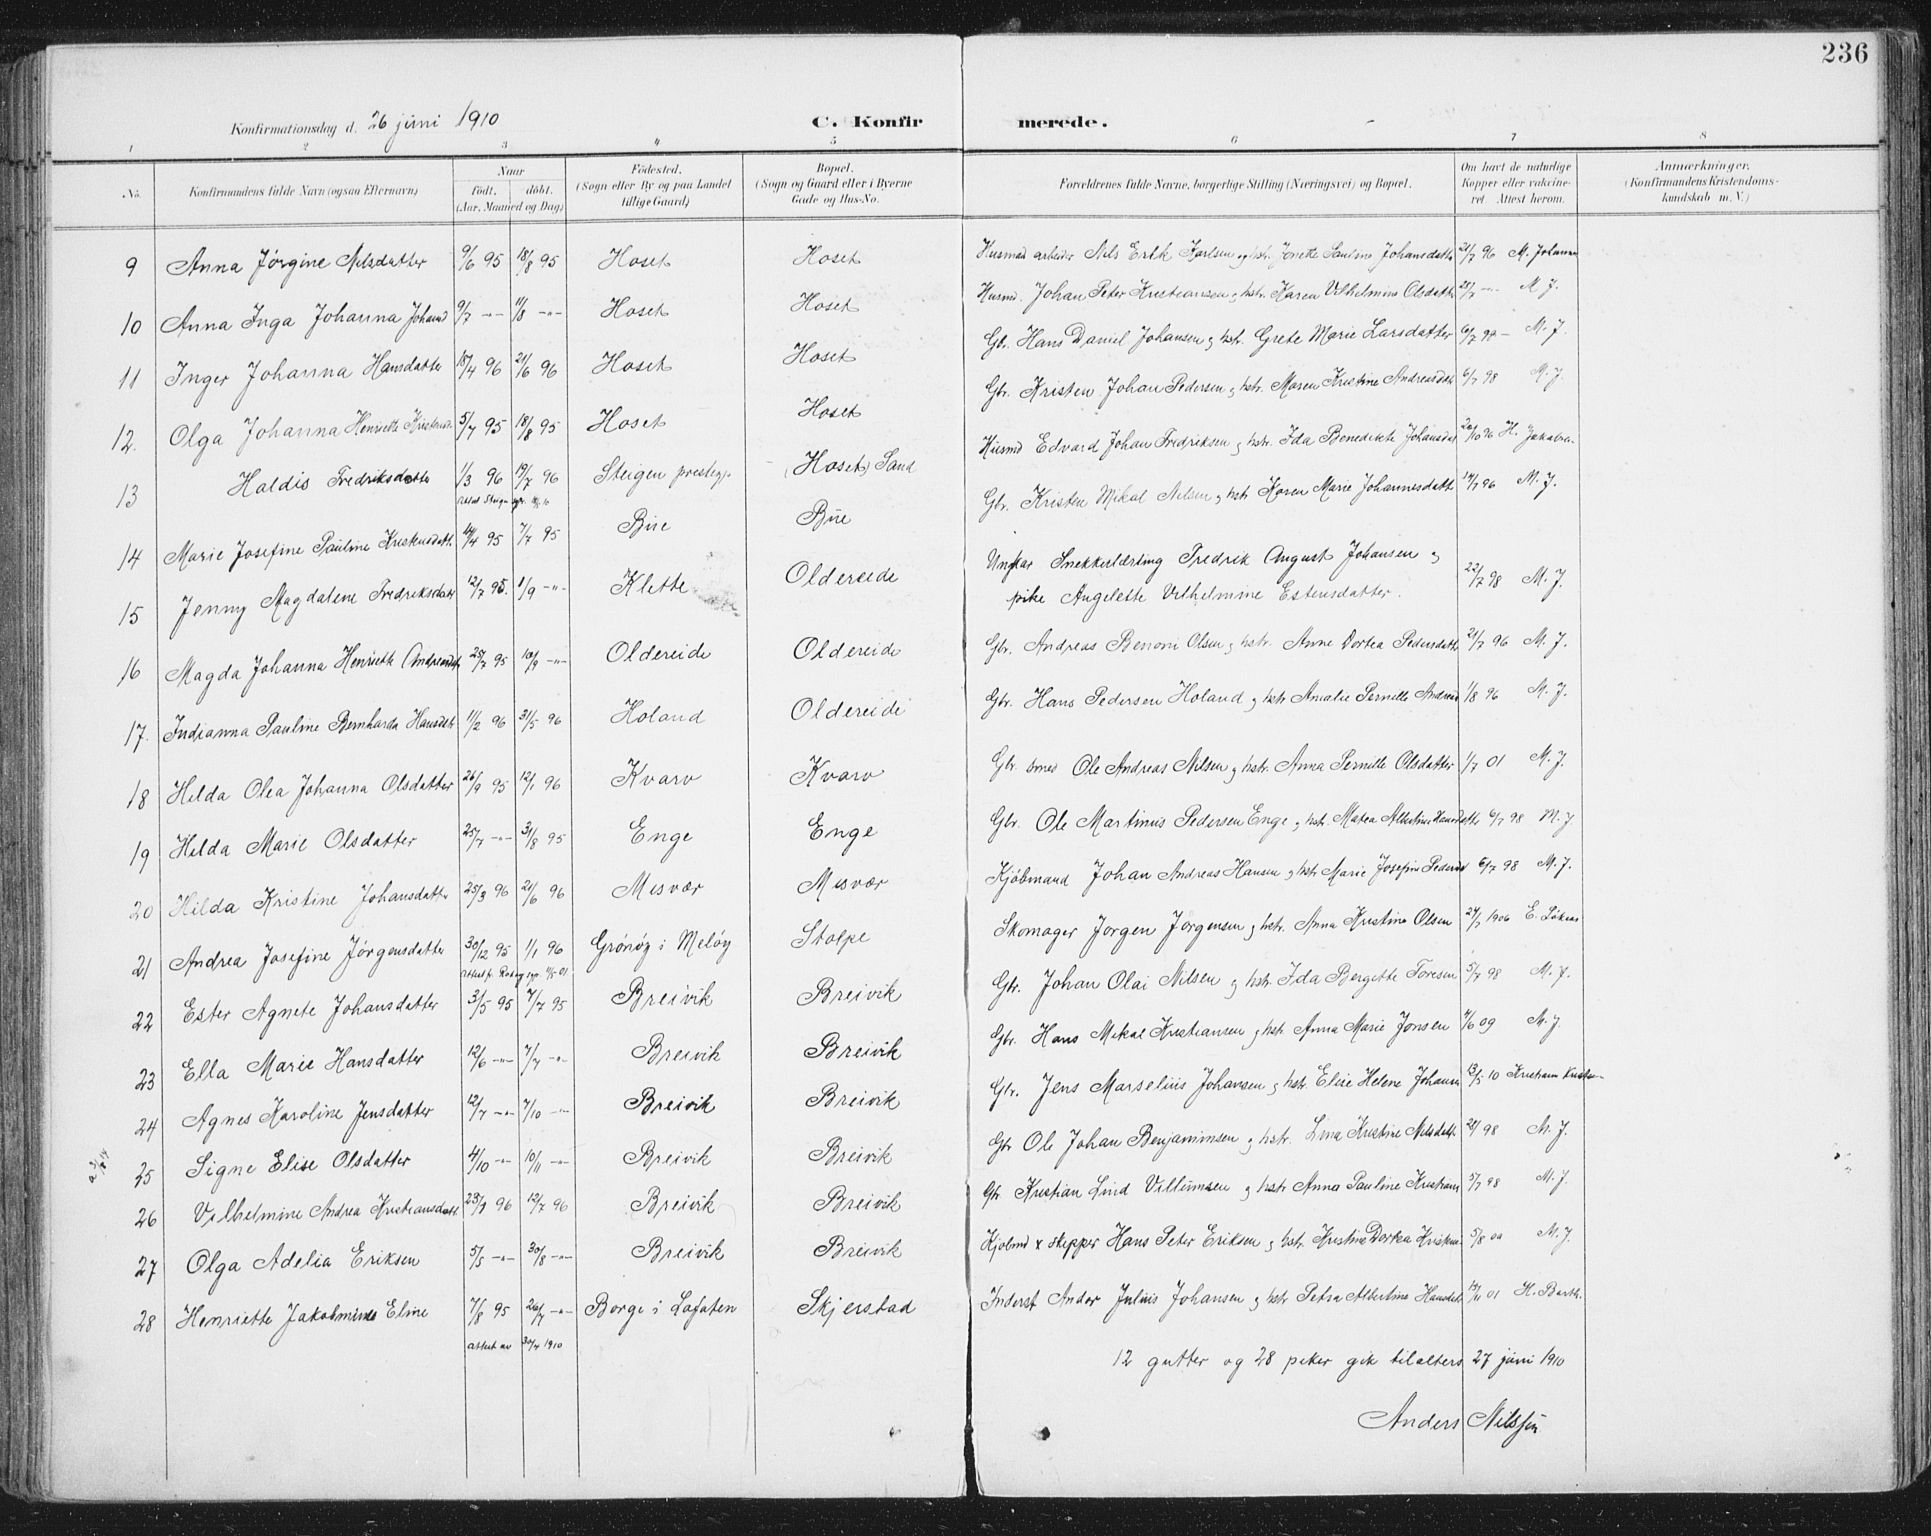 236
Konfirmationsdag d. 26 juni 1910
C. Konfir merede.
1 2 3 4 5 6 7 8
No.
Konfirmandens fulde Navn (ogsaa Efternavn)
Naar
født. døbt.
(Aar, Maaned og Dag)
Födested.
(Sogn eller By og paa Landet
tillige Gaard)
Bopæl.
(Sogn og Gaard eller i Byerne
Gade og Hus-No.
Forældrenes fulde Navne, borgerlige Stilling (Næringsvei) og Bopæl.
Om havt de naturlige
Kopper eller vakcine-
ret Attest herom.
Anmærkninger.
(Konfirmandens Kristendoms-
kundskab m. V.)
9 Anna Jørgine Nilsdatter 9/6 95 18/8 95 Hoset Hoset Husmd arbeider Nils Erik Karlsen og hstr. Jonette Pauline Johansdatter 21/7 96 M. Johansen
10 Anna Inga Johanna Johansd 9/7 -"- 11/8 -"- Hoset Hoset Husmd. Johan Peter Kristiansen og hstr. Karen Vilhelmine Olsdatter 21/7 -"- M. J.
11 Inger Johanna Hansdatter 18/4 96 21/6 96 Hoset Hoset Gbr. Hans Daniel Johansen og hstr. Grete Marie Larsdatter 6/7 98 M. J.
12. Olga Johanna Henriette Kristensd. 5/7 95 18/8 95 Hoset Hoset Gbr. Kristen Johan Pedersen og hstr. Maren Kristine Andreasdat 6/7 98 M. J.
13 Haldis Fredriksdatter 1/3 96 19/7 96 Steigen prestegj. (Hoset) Sand Husmd Edvard Johan Fredriksen og hstr. Ida Benedikte Johansdat 20/10 96 H. Jakobsen
Attest Steigen
14 Marie Josefine Pauline Kristensdatt. 14/4 95 7/7 95 Bue Bue Gbr. Kristen Mikal Nilsen og hstr Karen Marie Johannesdatt 14/7 96 M. J.
15 Jenny Magdalene Fredriksdatter 12/7 95. 1/9 -"- Klette Oldereide Ungkar Snekkerlærling Fredrik August Johansen og
pike Angelette Vilhelmine Estensdatter. 22/7 98 M. J.
16 Magda Johanna Henriette Andreasdt 25/7 95 10/9 -"- Oldereide Oldereide Gbr. Andreas Benoni Olsen og hstr. Anne Dortea Pedersdatt 21/7 96 M. J.
17. Indianna Pauline Bernharda Hansdat. 11/2 96 31/5 96 Holand Oldereide Gbr. Hans Pedersen Holand og hstr Amalie Pernille Andreasd 1/8 96 M. J.
18 Hilda Olea Johanna Olsdatter 26/9 95 12/1 96 Kvarv Kvarv Gbr. smed Ole Andreas Nilsen og hstr. Anna Pernille Olsdatter 1/7 01 M. J.
19 Hilda Marie Olsdatter 25/7 -"- 31/8 95 Enge Enge Gbr. Ole Martinus Pedersen Enge og hstr. Matea Albertine Hansdatt 6/7 98 M. J
20 Hilda Kristine Johansdatter 25/3 96 21/6 96 Misvær Misvær Kjøbmand Johan Andreas Hansen og hstr Marie Josefine Pedersd 6/7 98 M. J.
21 Andrea Josefine Jørgensdatter 30/12 95 1/1 96 Grønøy i Meløy Stolpe Skomager Jørgen Jørgensen og hstr. Anna Kristine Olsen 24/7 1906 E. Løkens
22 Ester Agnete Johansdatter 3/5 95 7/7 95 Breivik Breivik Gbr. Johan Olai Nilsen og hstr Ida Bergette Toresen 5/7 98 M. J.
23 Ella Marie Hansdatter 12/6 -"- 7/7 -"- Breivik Breivik Gbr. Hans Mikal Kristiansen og hstr. Anna Marie Jonsen 4/6 09 M. J
24 Agnes Karoline Jensdatter 12/7 -"- 7/10 -"- Breivik Breivik Gbr. Jens Marselius Johansen og hstr. Elise Helene Johans 13/5 10 Kristian Kristen
25 Signe Elise Olsdatter 4/10 -"- 10/11 -"- Breivik Breivik Gbr Ole Johan Benjaminsen og hstr. Lina Kristine Nilsdatt. 98 M. J.
26 Vilhelmine Andrea Kristiansdatt. 23/1 96 12/7 96 Breivik Breivik Gbr. Kristian Lind Villumsen og hstr Anna Pauline Kristians 5/7 98 M. J.
27 Olga Adelia Eriksen 5/5 -"- 30/8 -"- Breivik Breivik Kjøbmd & skipper Hans Peter Eriksen og hstr. Kristine Dortea Kristens 5/8 00 M. J.
28 Henriette Jakobmine Eline 7/8 95 26/7 -"- Borge i Lofoten Skjerstad Inderst Andor Julius Johansen og hstr Petra Albertine Hansdat 01 H. Barth.
Attest av 30/4 1910
12 gutter og 28 piker gik til alters 27 juni 1910
Anders Nilssen